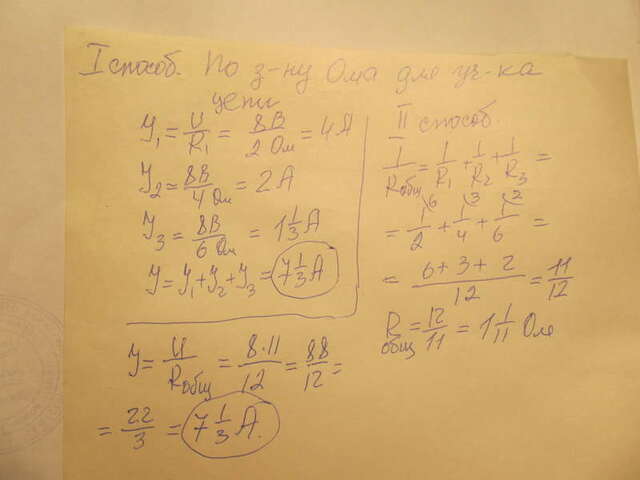 I способ. По з-ну Ома для уч-ка
цепи
У₁ = U/R₁ = 8В/2 Ом = 4 А
У₂ = 8В/4 Ом = 2 А
У₃ = 8В/6 Ом = 1 1/3 А
У = У₁ + У₂ + У₃ = 7 1/3 А
II способ.
1/Rобщ = 1/R₁ + 1/R₂ + 1/R₃ =
= 1/2 ⁶ + 1/4 ³ + 1/6 ² =
= 6 + 3 + 2/12 = 11/12
Rобщ = 12/11 = 1 1/11 Ом
У = U/Rобщ = 8·11/12 = 88/12 =
= 22/3 = 7 1/3 А.